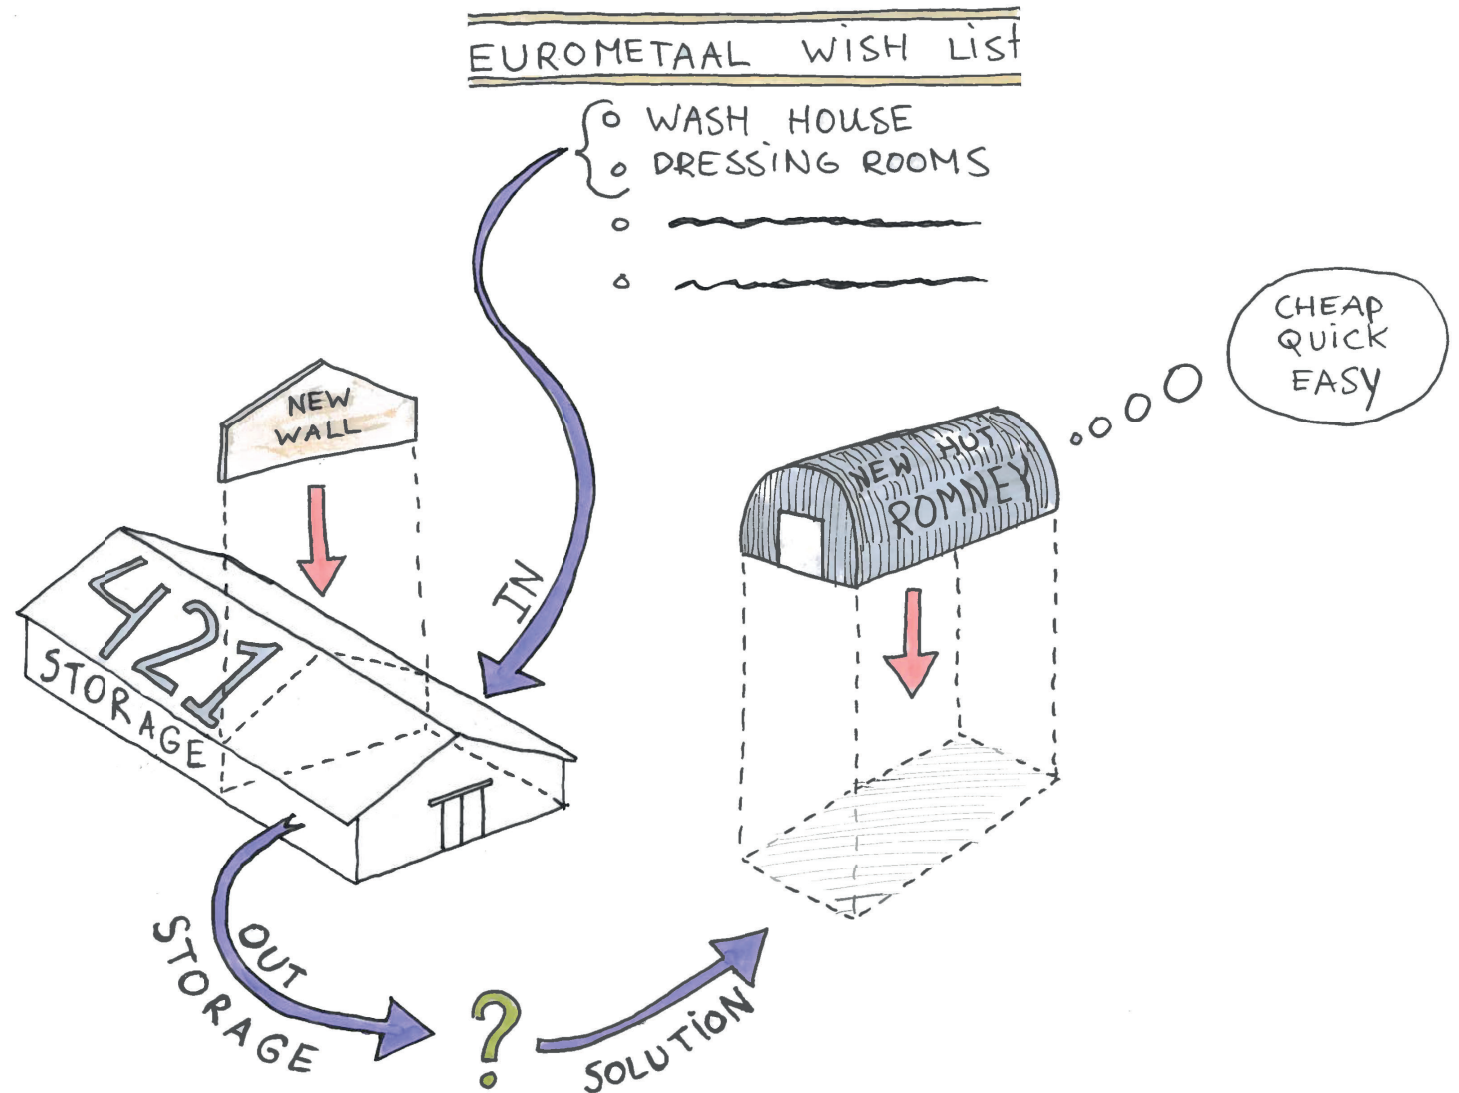 EUROMETAAL WISH LIST
WASH HOUSE
DRESSING ROOMS
CHEAP
QUICK
EASY
NEW
WALL
NEW HUT
ROMNEY
421
STORAGE
IN
OUT
STORAGE
?
SOLUTION